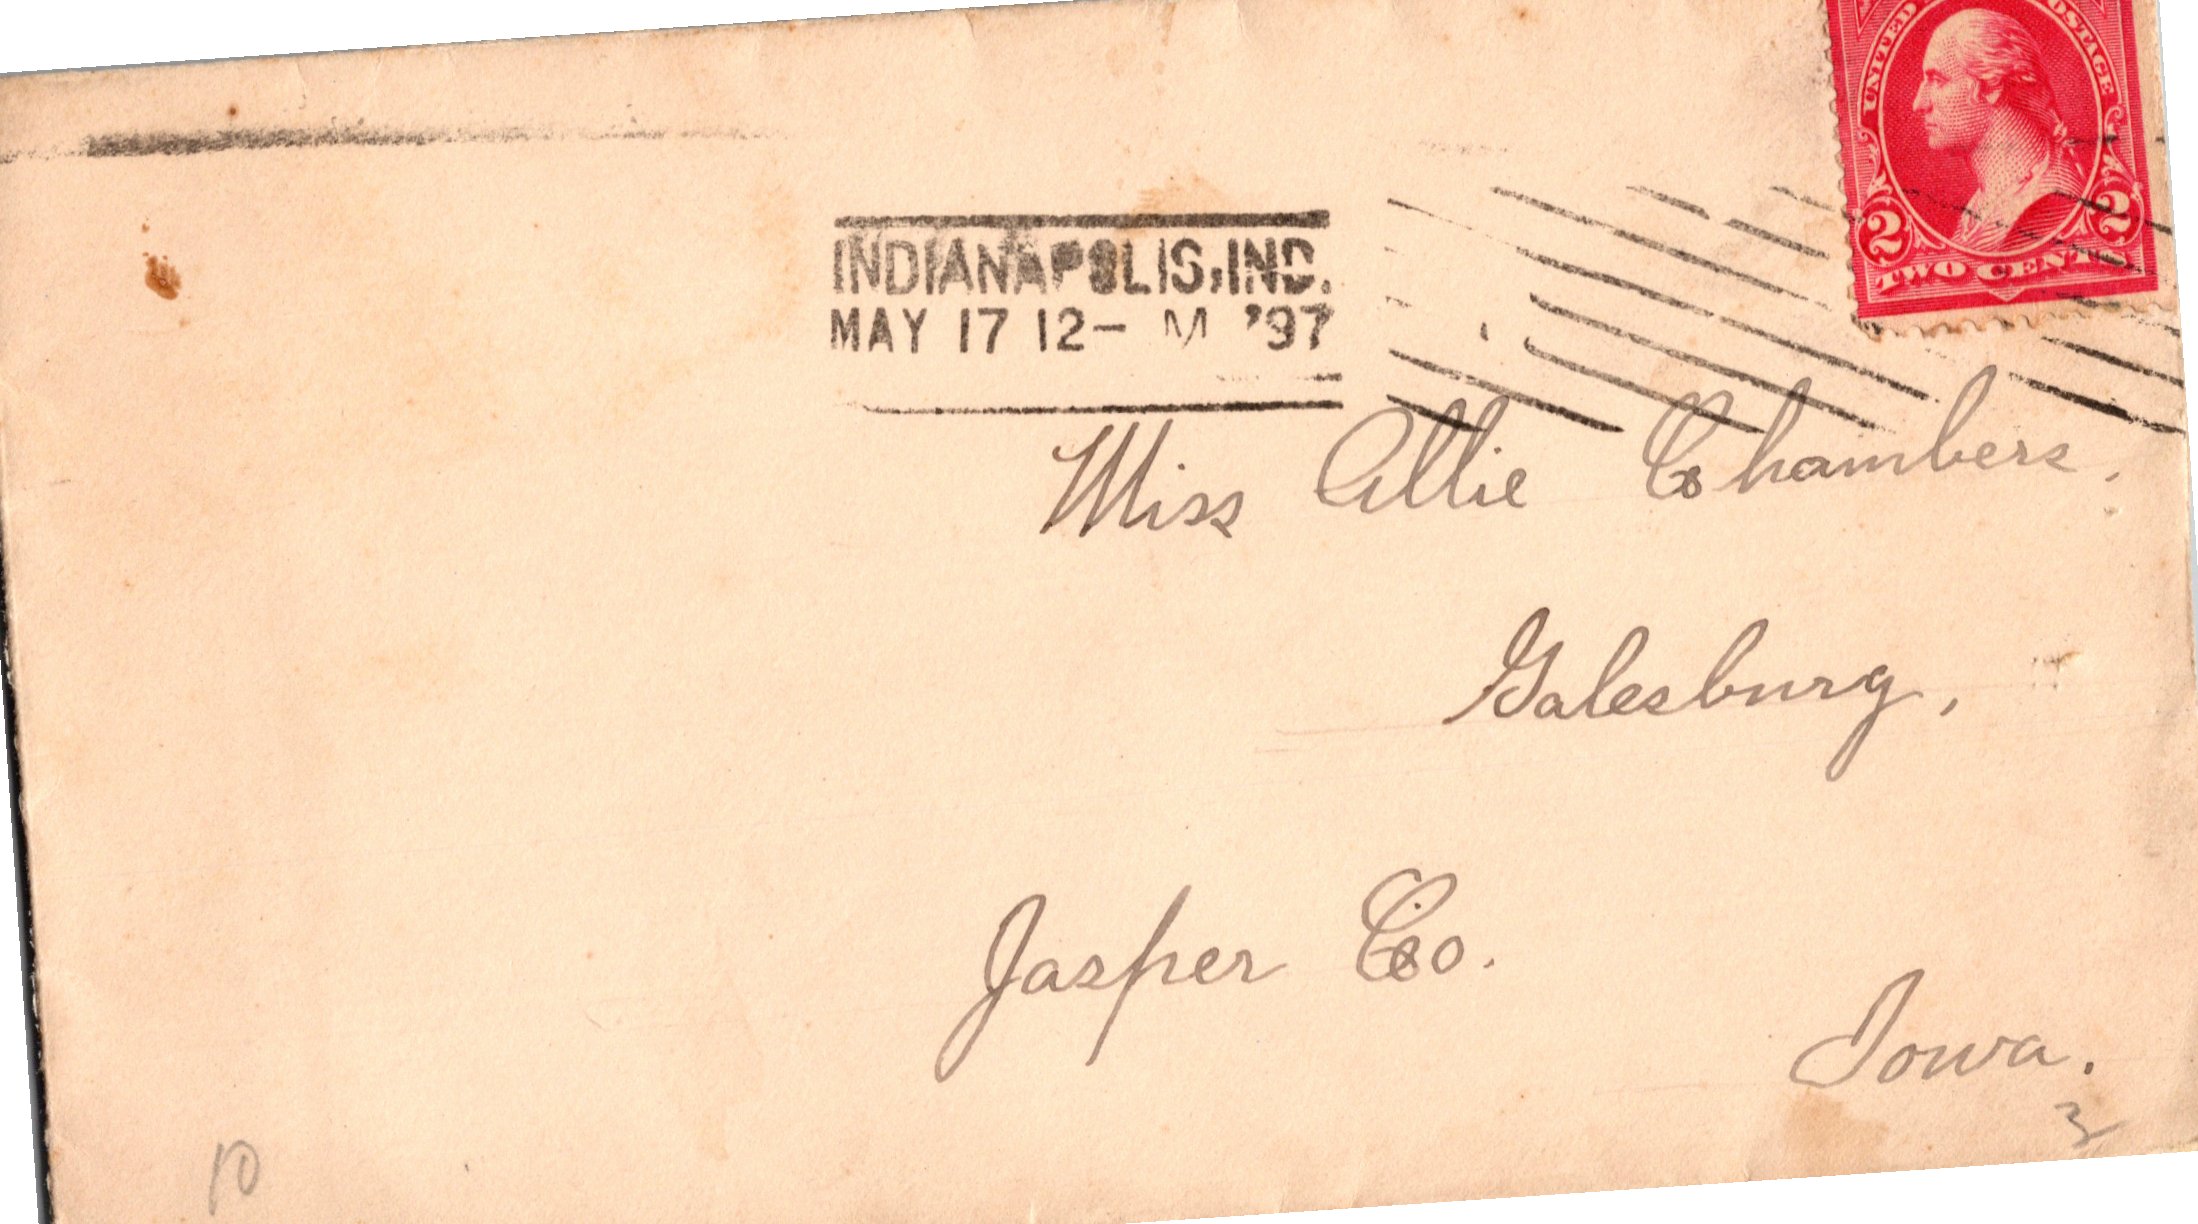 UNITED STATES POSTAGE
2 2
TWO CENTS
INDIANAPOLIS, IND.
MAY 17 12- M '97
Miss Allie Chambers.
Galesburg,
Jasper Co.
Iowa.
3
10